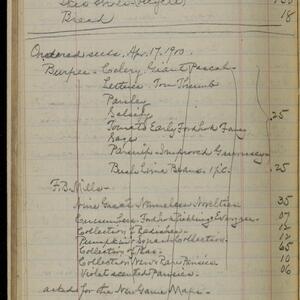 Bread 18
Ordered seeds, Apr. 17, 1900.
Burpee - Celery, Giant Pascal -
Lettuce Tom Thumb
Parsley
Salsify .25
Tomato Early
Parsnip - Improved Guernsey
Bush Lima Beans 1 pt. .25
F.B. Mills -
Nine Great Nameless Novelties 35
Cucumbers, Pickling 07
Collection of Radishes 12
Pumpkin & Squash Collection 12
Collection of Peas 65
Collection New & Rare 10
Violet scented Pansies 06
asked for the New Game